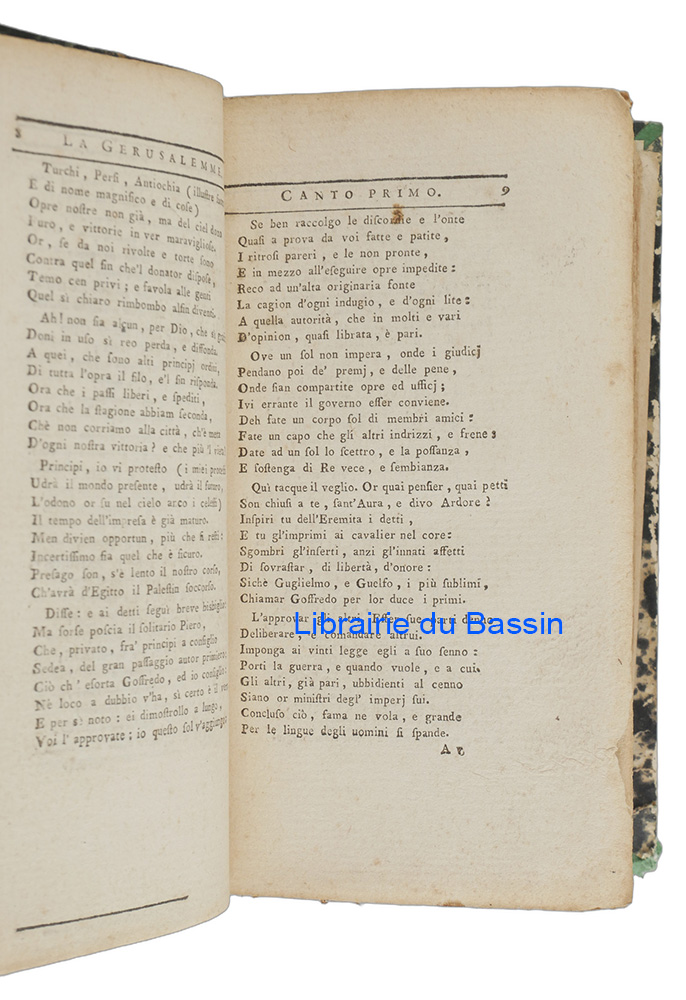 8 LA GERUSALEMME
Turchi, Persi, Antiochia (illustre
E di nome magnifico e di cose)
Opre nostre non già, ma del ciel dono
Furo, e vittorie in ver maravigliose.
Or, se da noi rivolte e torte sono
Contra quel fin che'l donator dispose,
Temo cen privi; e favola alle genti
Quel sì chiaro rimbombo alfin diventi.
Ah! non sia alcun, per Dio, che sì
Doni in uso sì reo perda, e diffonda.
A quei, che sono alti principj orditi,
Di tutta l'opra il filo, e'l fin risponda.
Ora che i passi liberi, e spediti,
Ora che la stagione abbiam seconda,
Chè non corriamo alla città, ch'è meta
D'ogni nostra vittoria? e che più
Principi, io vi protesto (i miei
Udrà il mondo presente, udrà il futuro,
L'odono or su nel cielo anco i celesti)
Il tempo dell'impresa è già maturo.
Men divien opportun, più che si resti:
Incertissimo fia quel che è sicuro.
Presago son, s'è lento il nostro corso,
Ch'avrà d'Egitto il Palestin soccorso.
Disse: e ai detti seguì breve bisbiglio:
Ma sorse poscia il solitario Piero,
Che, privato, fra' principi a consiglio
Sedea, del gran passaggio autor primiero:
Ciò ch' esorta Goffredo, ed io consiglio:
Nè loco a dubbio v'ha, sì certo è il
E per sè noto: ei dimostrollo a lungo,
Voi l' approvate; io questo sol v'aggiungo
CANTO PRIMO. 9
Se ben raccolgo le discordie e l'onte
Quasi a prova da voi fatte e patite,
I ritrosi pareri, e le non pronte,
E in mezzo all'eseguire opre impedite:
Reco ad un'alta originaria fonte
La cagion d'ogni indugio, e d'ogni lite:
A quella autorità, che in molti e vari
D'opinion, quasi librata, è pari.
Ove un sol non impera, onde i giudicj
Pendano poi de' premj, e delle pene,
Onde sian compartite opre ed ufficj;
Ivi errante il governo esser conviene.
Deh fate un corpo sol di membri amici:
Fate un capo che gli altri indrizzi, e frene:
Date ad un sol lo scettro, e la possanza,
E sostenga di Re vece, e sembianza.
Quì tacque il veglio. Or quai pensier, quai petti
Son chiusi a te, sant'Aura, e divo Ardore?
Inspiri tu dell'Eremita i detti,
E tu gl'imprimi ai cavalier nel core:
Sgombri gl'inserti, anzi gl'innati affetti
Di sovrastar, di libertà, d'onore:
Sichè Guglielmo, e Guelfo, i più sublimi,
Chiamar Goffredo per lor duce i primi.
L'approvar gli altri
Deliberare, e comandare altrui.
Imponga ai vinti legge egli a suo senno:
Porti la guerra, e quando vuole, e a cui.
Gli altri, già pari, ubbidienti al cenno
Siano or ministri degl' imperj sui.
Concluso ciò, fama ne vola, e grande
Per le lingue degli uomini si spande.
A 5
Librairie du Bassin